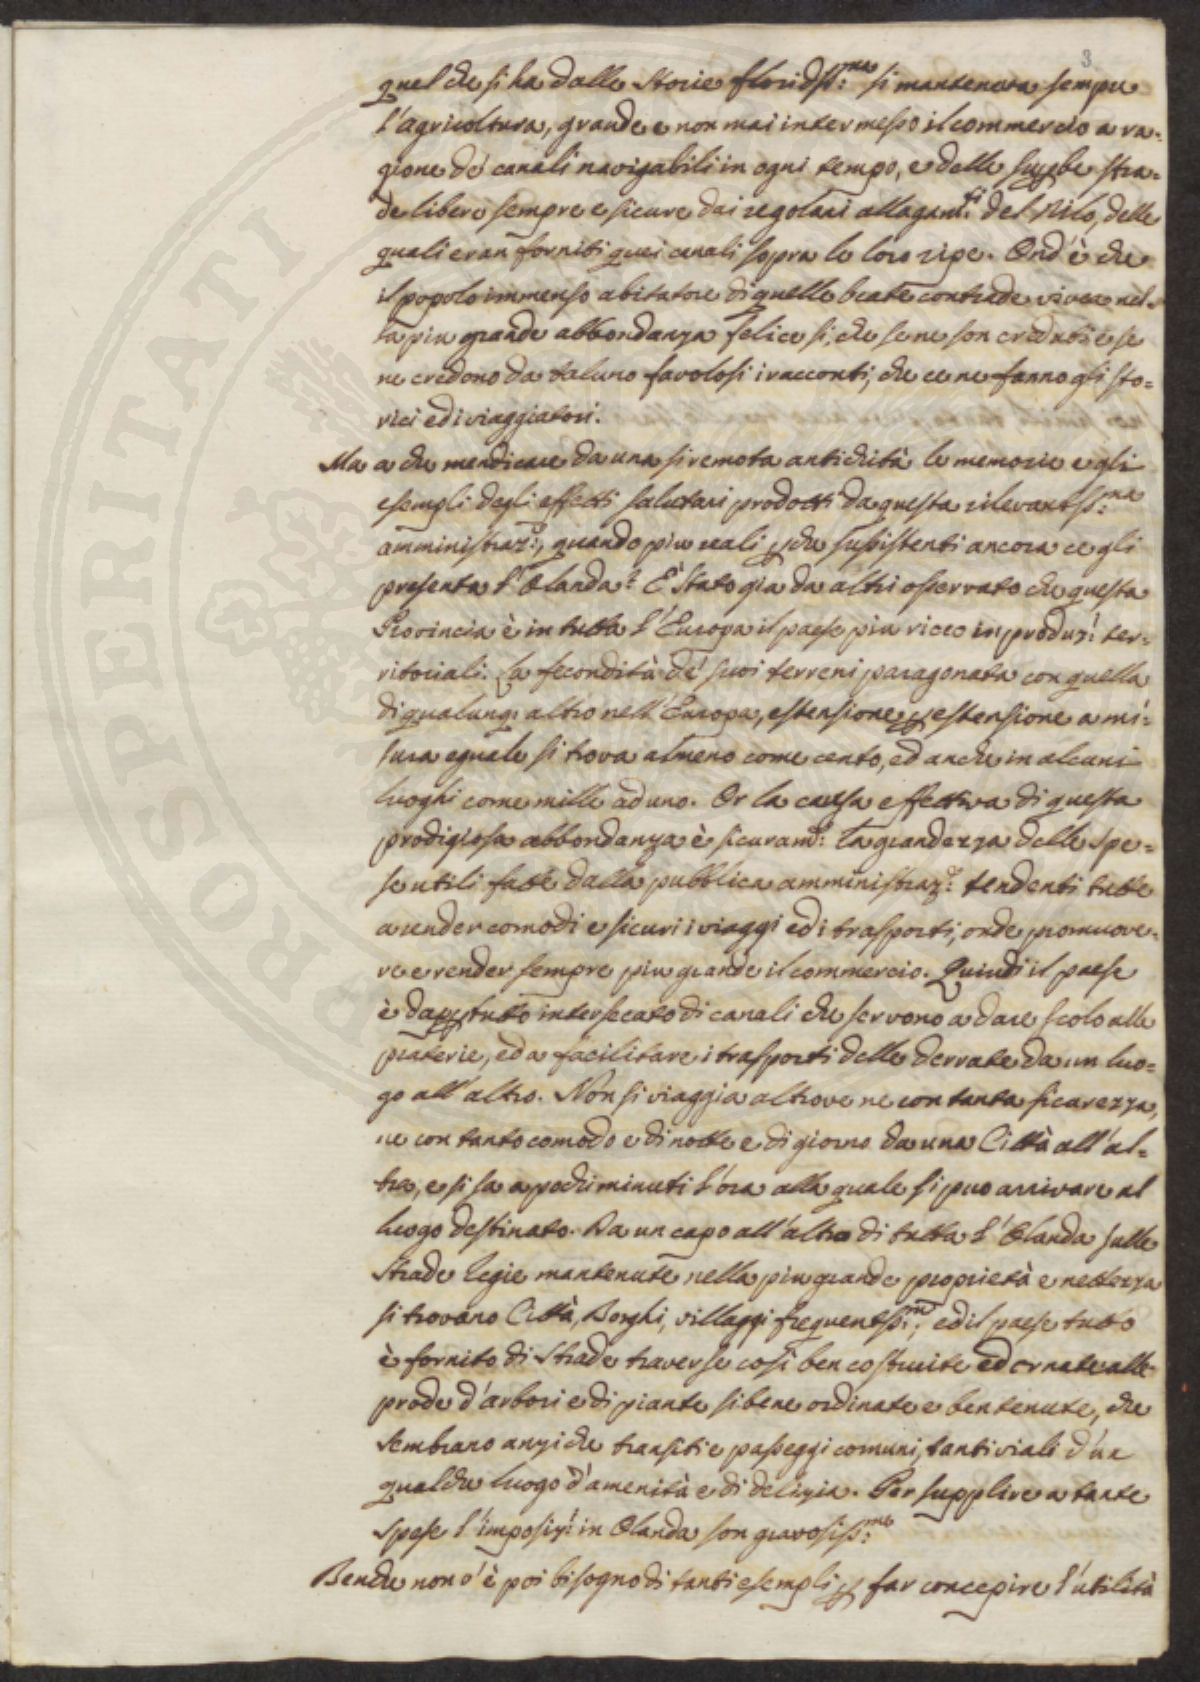 3
quel che si ha dalle Storie floridss:ma si manteneva sempre
l'agricoltura, grande e non mai intermesso il commercio a ra=
gione de' canali navigabili in ogni tempo, e delle superbe stra=
de libere sempre e sicure dai regolari allagam:ti del Nilo, delle
quali eran forniti quei canali sopra le loro ripe. Ond'è che
il popolo immenso abitatore di quelle beate contrade vivea nel=
la piu grande abbondanza felice si, che se ne son creduti e se
ne credono da taluno favolosi i racconti, che ce ne fanno gli sto=
rici ed i viaggiatori.
Ma a che mendicare da una si remota antichità le memorie e gli
esempli degli effetti salutari prodotti da questa rilevantss:ma
amministraz:e, quando piu reali perche sussistenti ancora ce gli
presenta l'Olanda? E' stato gia da altri osservato che questa
Provincia è in tutta l'Europa il paese piu ricco in produz:i ter=
ritoriali. La fecondità de' suoi terreni paragonata con quella
di qualunq: altro nell'Europa, estensione per estensione a mi=
sura eguale si trova almeno come cento, ed anche in alcuni
luoghi come mille ad uno. Or la causa effettiva di questa
prodigiosa abbondanza è sicuram:e la grandezza delle spe=
se utili fatte dalla pubblica amministraz:e tendenti tutte
a render comodi e sicuri i viaggi ed i trasporti, onde promuove=
re e render sempre piu grande il commercio. Quindi il paese
è dapertutto intersecato di canali che servono a dare scolo alle
praterie, ed a facilitare i trasporti delle derrate da un luo=
go all'altro. Non si viaggia altrove ne con tanta sicurezza,
ne con tanto comodo e di notte e di giorno da una Città all'al=
tra, e si sa a pochi minuti l'ora alla quale si puo arrivare al
luogo destinato. Da un capo all'altro di tutta l'Olanda sulle
strade Regie mantenute nella piu grande proprietà e nettezza
si trovano Città, Borghi, villaggi frequentss:mi, ed il paese tutto
è fornito di strade traverse cosi ben costruite ed ornate alle
prode d'arbori e di piante si bene ordinate e ben tenute, che
sembrano anziche transiti e passeggi comuni, tanti viali d'un
qualche luogo d'amenità e di delizia. Per supplire a tante
spese l'imposiz:i in Olanda son gravosiss:me
Benche non v'è poi bisogno di tanti esempli per far concepire l'utilità
PROSPERITATI